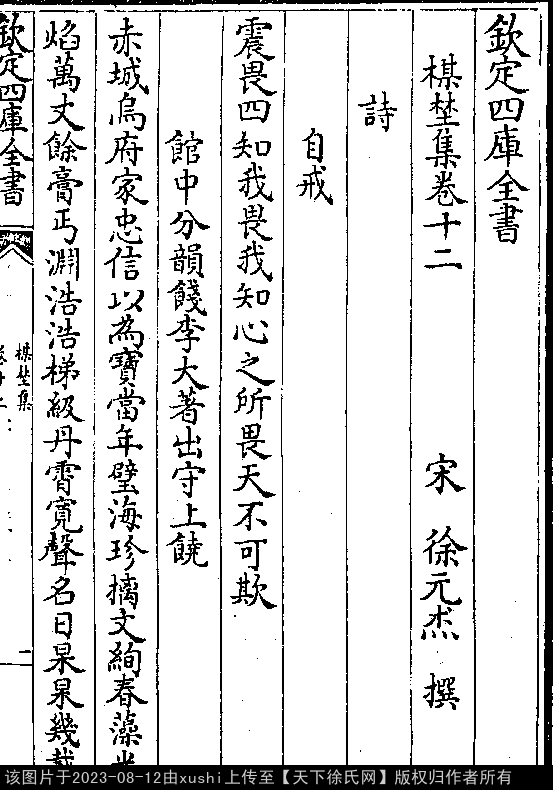 欽定四庫全書
楳埜集卷十二
宋 徐元杰 撰
詩
自戒
震畏四知我畏我知心之所畏天不可欺
館中分韻餞李大著出守上饒
赤城烏府家忠信以為寶當年璧海珍摛文絢春藻光
焰萬丈餘膏丐淵浩浩梯級丹霄寛聲名日杲杲幾
欽定四庫全書
楳埜集
該图片于2023-08-12由xushi上传至【天下徐氏网】版权归作者所有